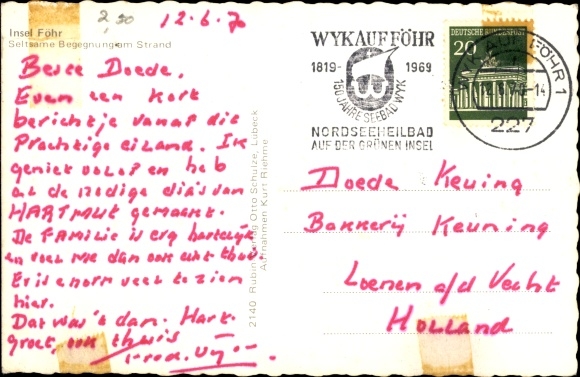 2,50
12.6.70
Insel Föhr
Seltsame Begegnung am Strand
Beste Doede,
Even een kort
berichtje vanaf dit
Prachtige eiland. Ik
geniet volop en heb
al de nodige dia's van
HARTMUT gemaakt.
De Familie is erg hartelijk
en voel me dan ook echt thuis.
Er is enorm veel te zien
hier.
Dat was 't dan. Hart.
groet, ook thuis
2140 Rubin Verlag Otto Schulze, Lübeck
Aufnahmen Kurt Riehme
WYK AUF FÖHR
1819- 1969
150 JAHRE SEEBAD WYK
NORDSEEHEILBAD
AUF DER GRÜNEN INSEL
DEUTSCHE BUNDESPOST
20
FÖHR 1
-14
227
Doede Keuning
Bakkerij Keuning
Loenen a/d Vecht
Holland